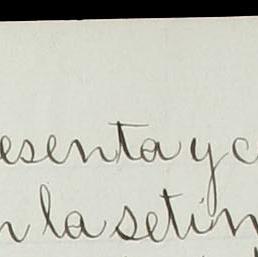 esenta y c
n la setin